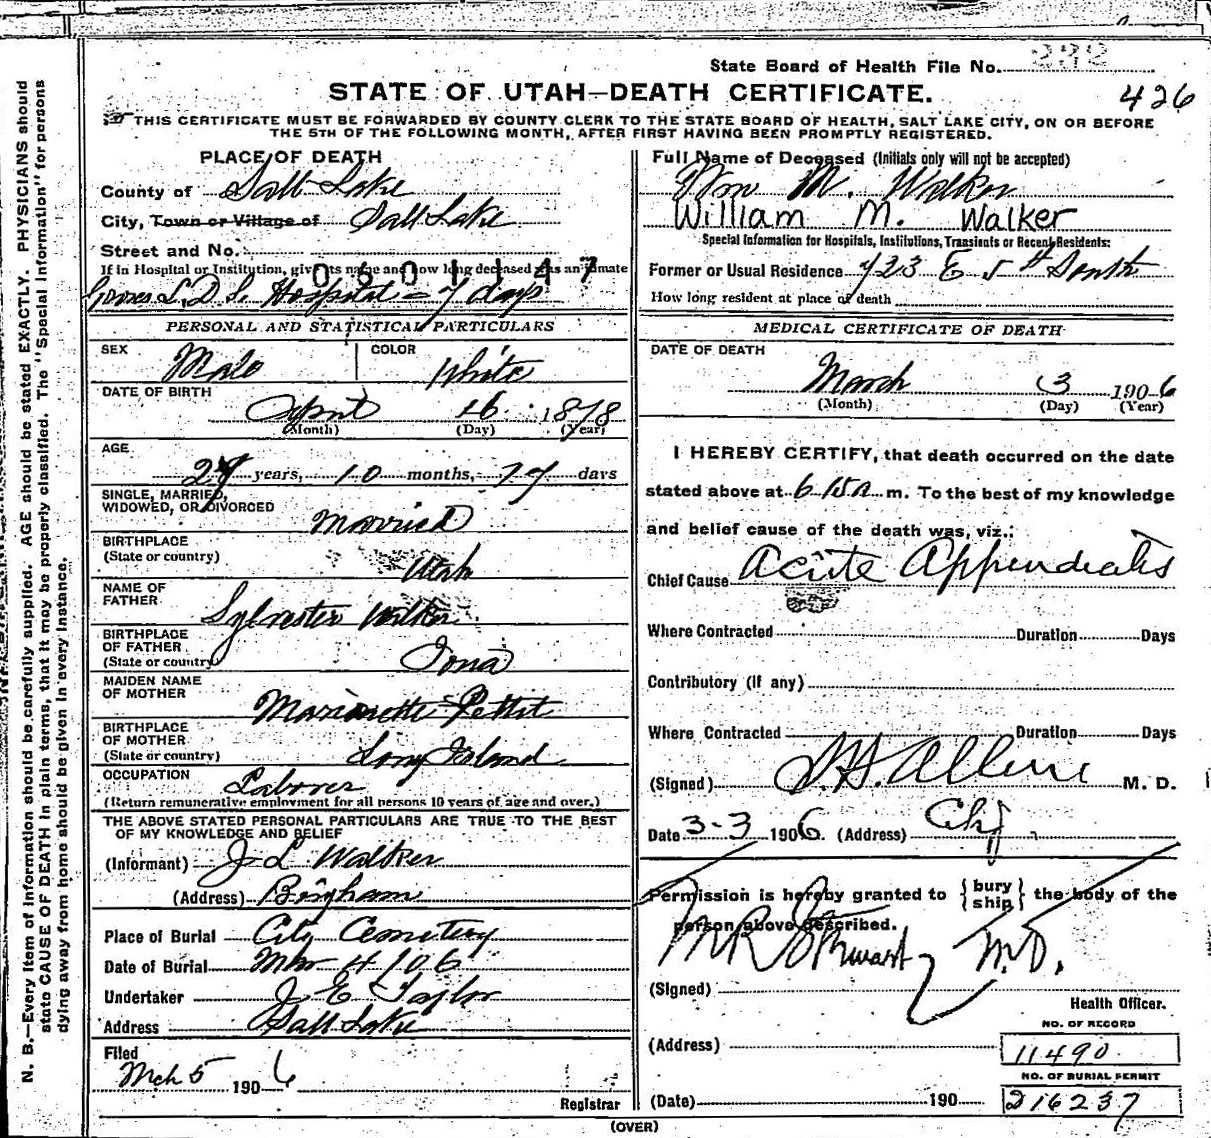 State Board of Health File No. 232
STATE OF UTAH—DEATH CERTIFICATE.
426
THIS CERTIFICATE MUST BE FORWARDED BY COUNTY CLERK TO THE STATE BOARD OF HEALTH, SALT LAKE CITY, ON OR BEFORE
THE 5TH OF THE FOLLOWING MONTH, AFTER FIRST HAVING BEEN PROMPTLY REGISTERED.
PLACE OF DEATH
County of Salt Lake
City, Town or Village of Salt Lake
Street and No.
If in Hospital or Institution, give its name and how long deceased was an inmate
0601147
Groves L. D. S. Hospital = 7 days
PERSONAL AND STATISTICAL PARTICULARS
SEX Male
COLOR White
DATE OF BIRTH
April 16 1878
(Month) (Day) (Year)
AGE
27 years, 10 months, 17 days
SINGLE, MARRIED,
WIDOWED, OR DIVORCED Married
BIRTHPLACE
(State or country) Utah
NAME OF
FATHER Sylvester Walker
BIRTHPLACE
OF FATHER
(State or country) Iowa
MAIDEN NAME
OF MOTHER Pettit
BIRTHPLACE
OF MOTHER
(State or country) Long Island
OCCUPATION Laborer
(Return remunerative employment for all persons 10 years of age and over.)
THE ABOVE STATED PERSONAL PARTICULARS ARE TRUE TO THE BEST
OF MY KNOWLEDGE AND BELIEF
(Informant) J L Walker
(Address) Bingham
Place of Burial City Cemetery
Date of Burial Mar 4/06
Undertaker J E Taylor
Address Salt Lake
Filed
Mch 5 1906
Registrar
Full Name of Deceased (Initials only will not be accepted)
Wm M. Walker
William M. Walker
Special Information for Hospitals, Institutions, Transients or Recent Residents:
Former or Usual Residence 723 E 5th South
How long resident at place of death
MEDICAL CERTIFICATE OF DEATH
DATE OF DEATH
March 3 1906
(Month) (Day) (Year)
I HEREBY CERTIFY, that death occurred on the date
stated above at 6 15 a m. To the best of my knowledge
and belief cause of the death was, viz.:
Chief Cause Acute Appendicitis
Where Contracted Duration Days
Contributory (if any)
Where Contracted Duration Days
(Signed) M. D.
Date 3-3 1906 (Address) City
Permission is hereby granted to {bury ship} the body of the
person above described.
M R Stewart M.D.
(Signed)
Health Officer.
NO. OF RECORD
(Address) 11490
NO. OF BURIAL PERMIT
(Date) 190 216237
(OVER)
N. B.—Every item of information should be carefully supplied. AGE should be stated EXACTLY. PHYSICIANS should
state CAUSE OF DEATH in plain terms, that it may be properly classified. The "Special Information" for persons
dying away from home should be given in every instance.